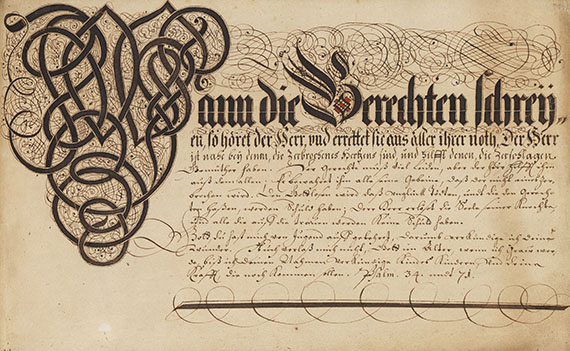 Wann die Gerechten schreÿ„
en, so höret der Herr, vnd errettet sie aus aller ihrer noth. Der Herr
ist nahe beÿ denen, die Zerbrochens Hertzens sind, und hilfft denen, die Zerschlagen
Gemüther haben. Der Gerechte muß viel leiden, aber der Herr hilfft ihm
auß dem allen. Er bewahret ihm alle seine Gebeine, daß der nicht eines
zerbrochen wird. Den Gottlosen wird das Unglück tödten, und die den Gerech-
ten haßen, werden Schuld haben. Der Herr erlößt die Seele seiner Knechte,
und alle die auf ihn trauen, werden keine Schuld haben.
Gott du hast mich von Jugend auf gelehret, darumb verkündige ich deine
Wunder. Auch verlaß mich nicht, Gott, im Alter, wenn ich grau wer-
de, biß ich deinen Arm verkündige Kindes Kindern, und deine
Krafft, die noch kommen sollen. Psalm. 34. und 71.